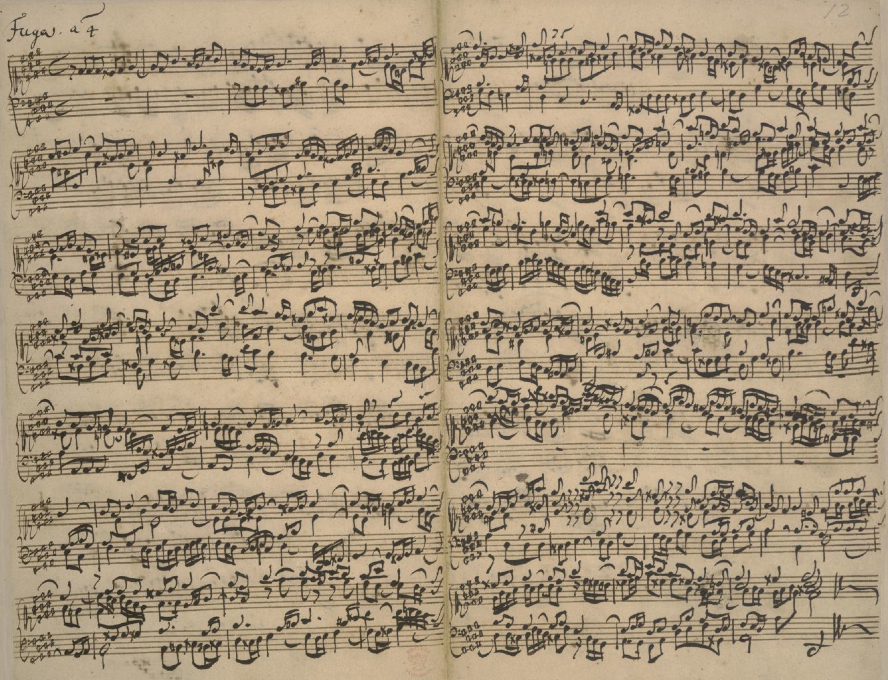 Fuga. a 4
12